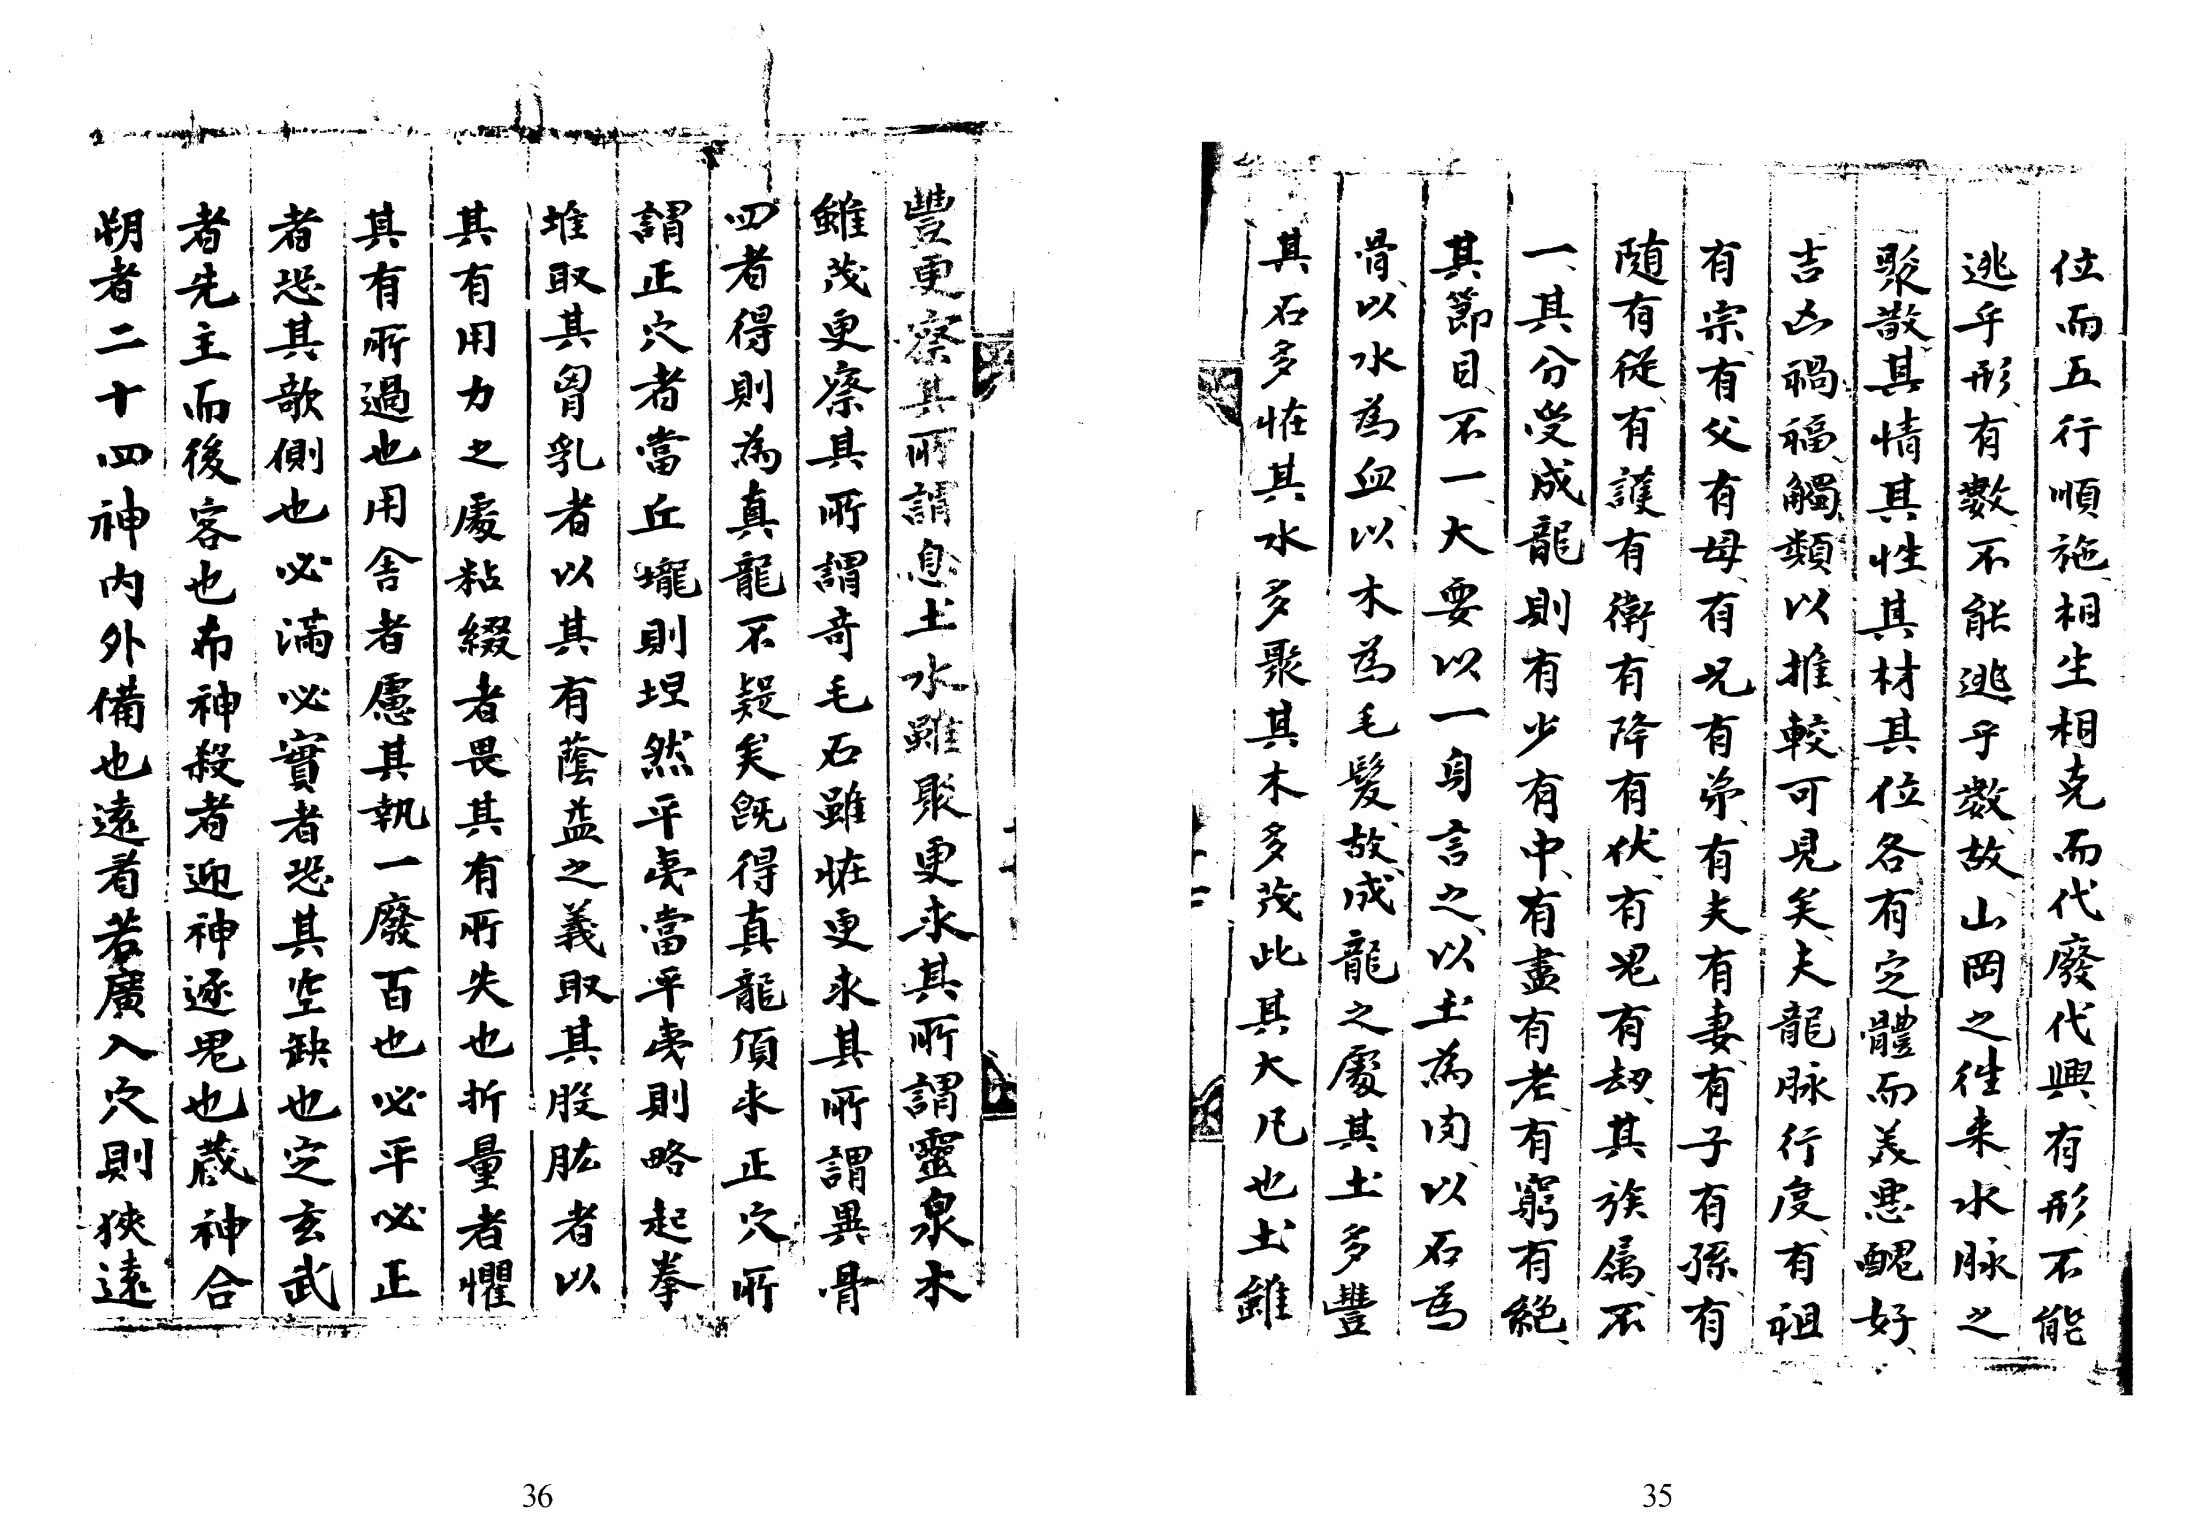 位而五行順施相生相克而代廢代興有形不能
逃乎形有數不能逃乎數故山岡之徃来水脉之
聚散其情其性其材其位各有定體而美悪醜好
吉凶禍福觸類以推較可見矣夫龍脉行度有祖
有宗有父有母有兄有弟有夫有妻有子有孫有
随有從有護有衛有降有伏有鬼有刼其族属不
一其分受成龍則有少有中有盡有老有窮有絶
其節目不一大要以一身言之以土為肉以石為
骨以水為血以木為毛髮故成龍之處其土多豐
其石多恠其水多聚其木多茂此其大凡也土雖
豐更察其所謂息土水雖聚更求其所謂靈泉木
雖茂更察其所謂竒毛石雖恠更求其所謂異骨
四者得則為真龍不疑矣旣得真龍須求正穴所
謂正穴者當丘壠則坦然平夷當平夷則略起拳
堆取其胷乳者以其有蔭益之義取其股肱者以
其有用力之處粘綴者畏其有所失也折量者懼
其有所過也用舍者慮其執一廢百也必平必正
者恐其欹側也必滿必實者恐其空缺也定玄武
者先主而後客也布神殺者迎神逐鬼也蔵神合
朔者二十四神内外備也遠着若廣入穴則狹遠
36
35